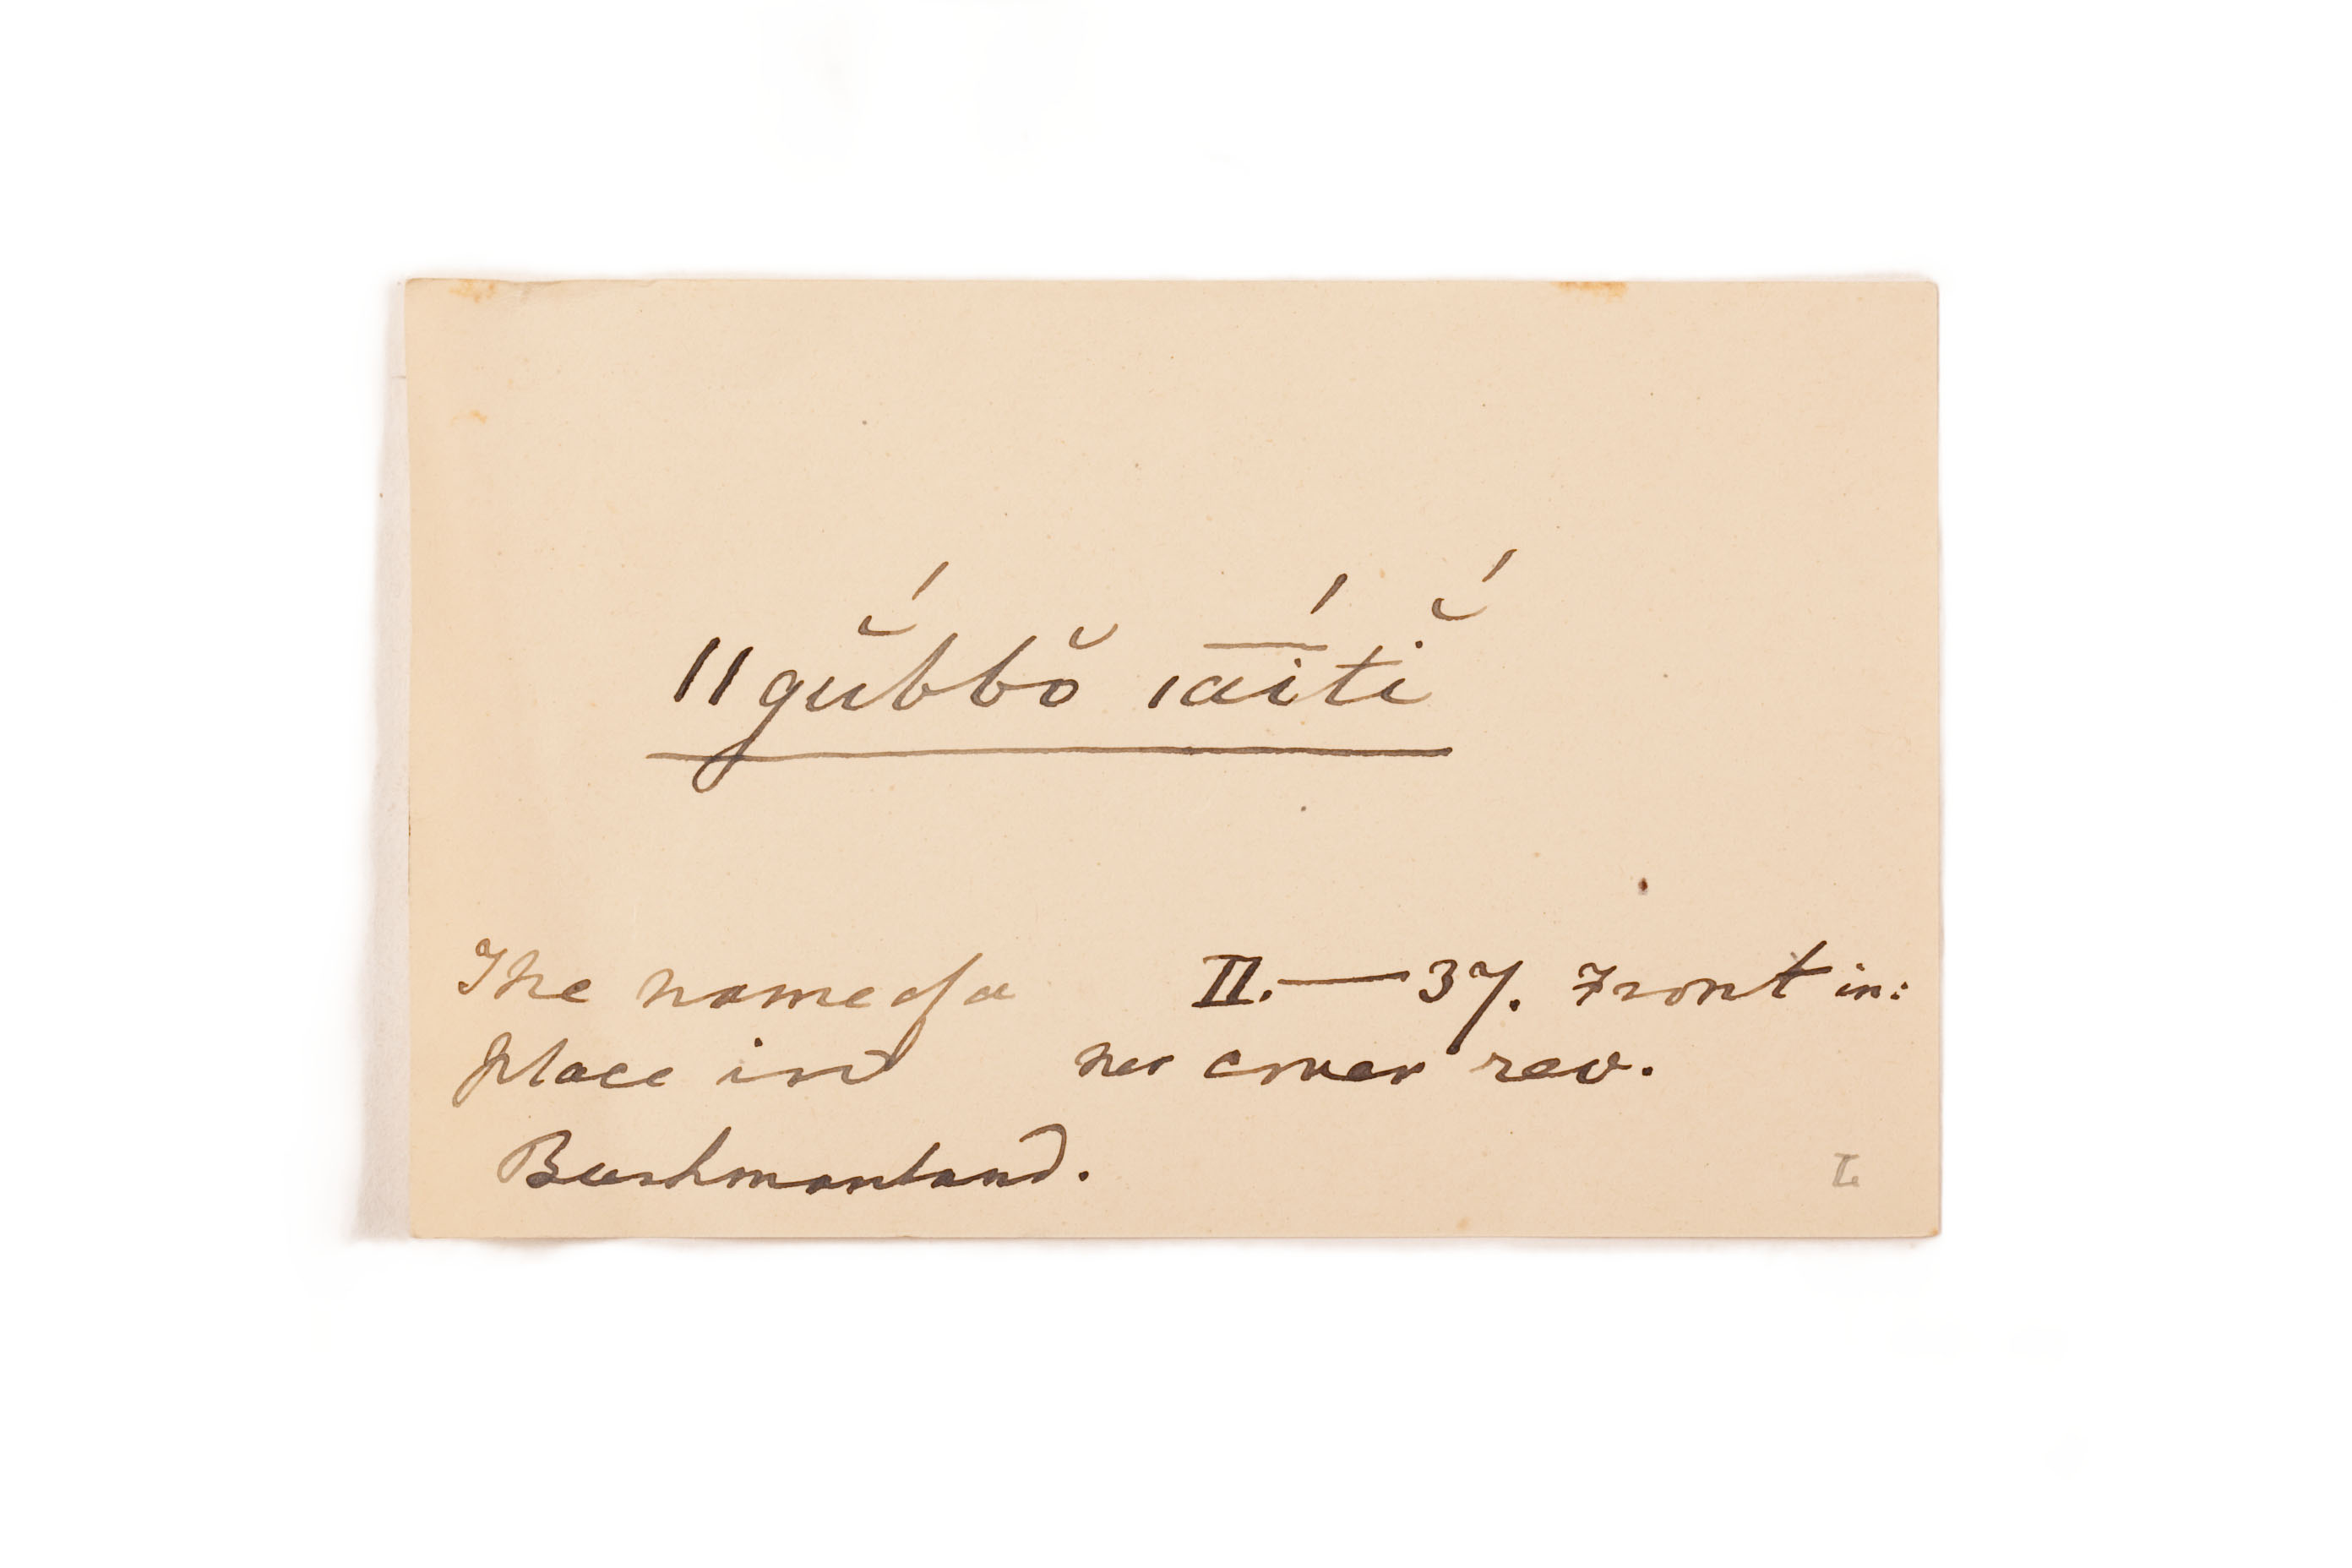 ǁgŭ́bbŏ ǀā́itĭ́
The name of a
place in
Bushmanland.
II.—37. Front in:
ner cover rev.
L